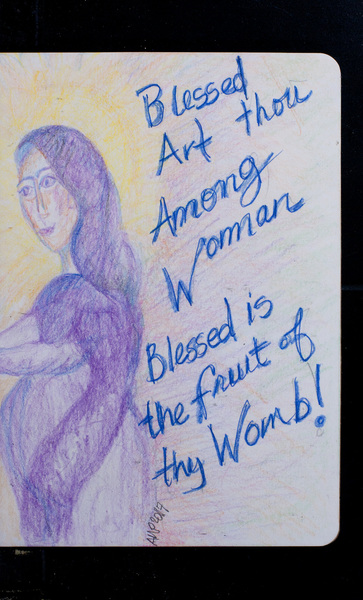 Blessed
Art thou
Among
Woman
Blessed is
the fruit of
thy Womb!